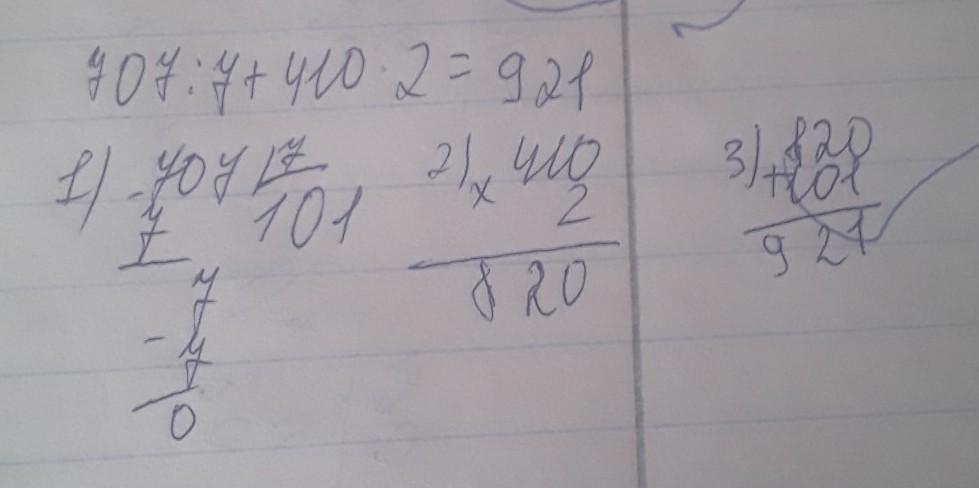 707:7+410·2=921
1) -707 |7
7 101
7
-7
0
2) x 410
2
820
3) +820
101
921